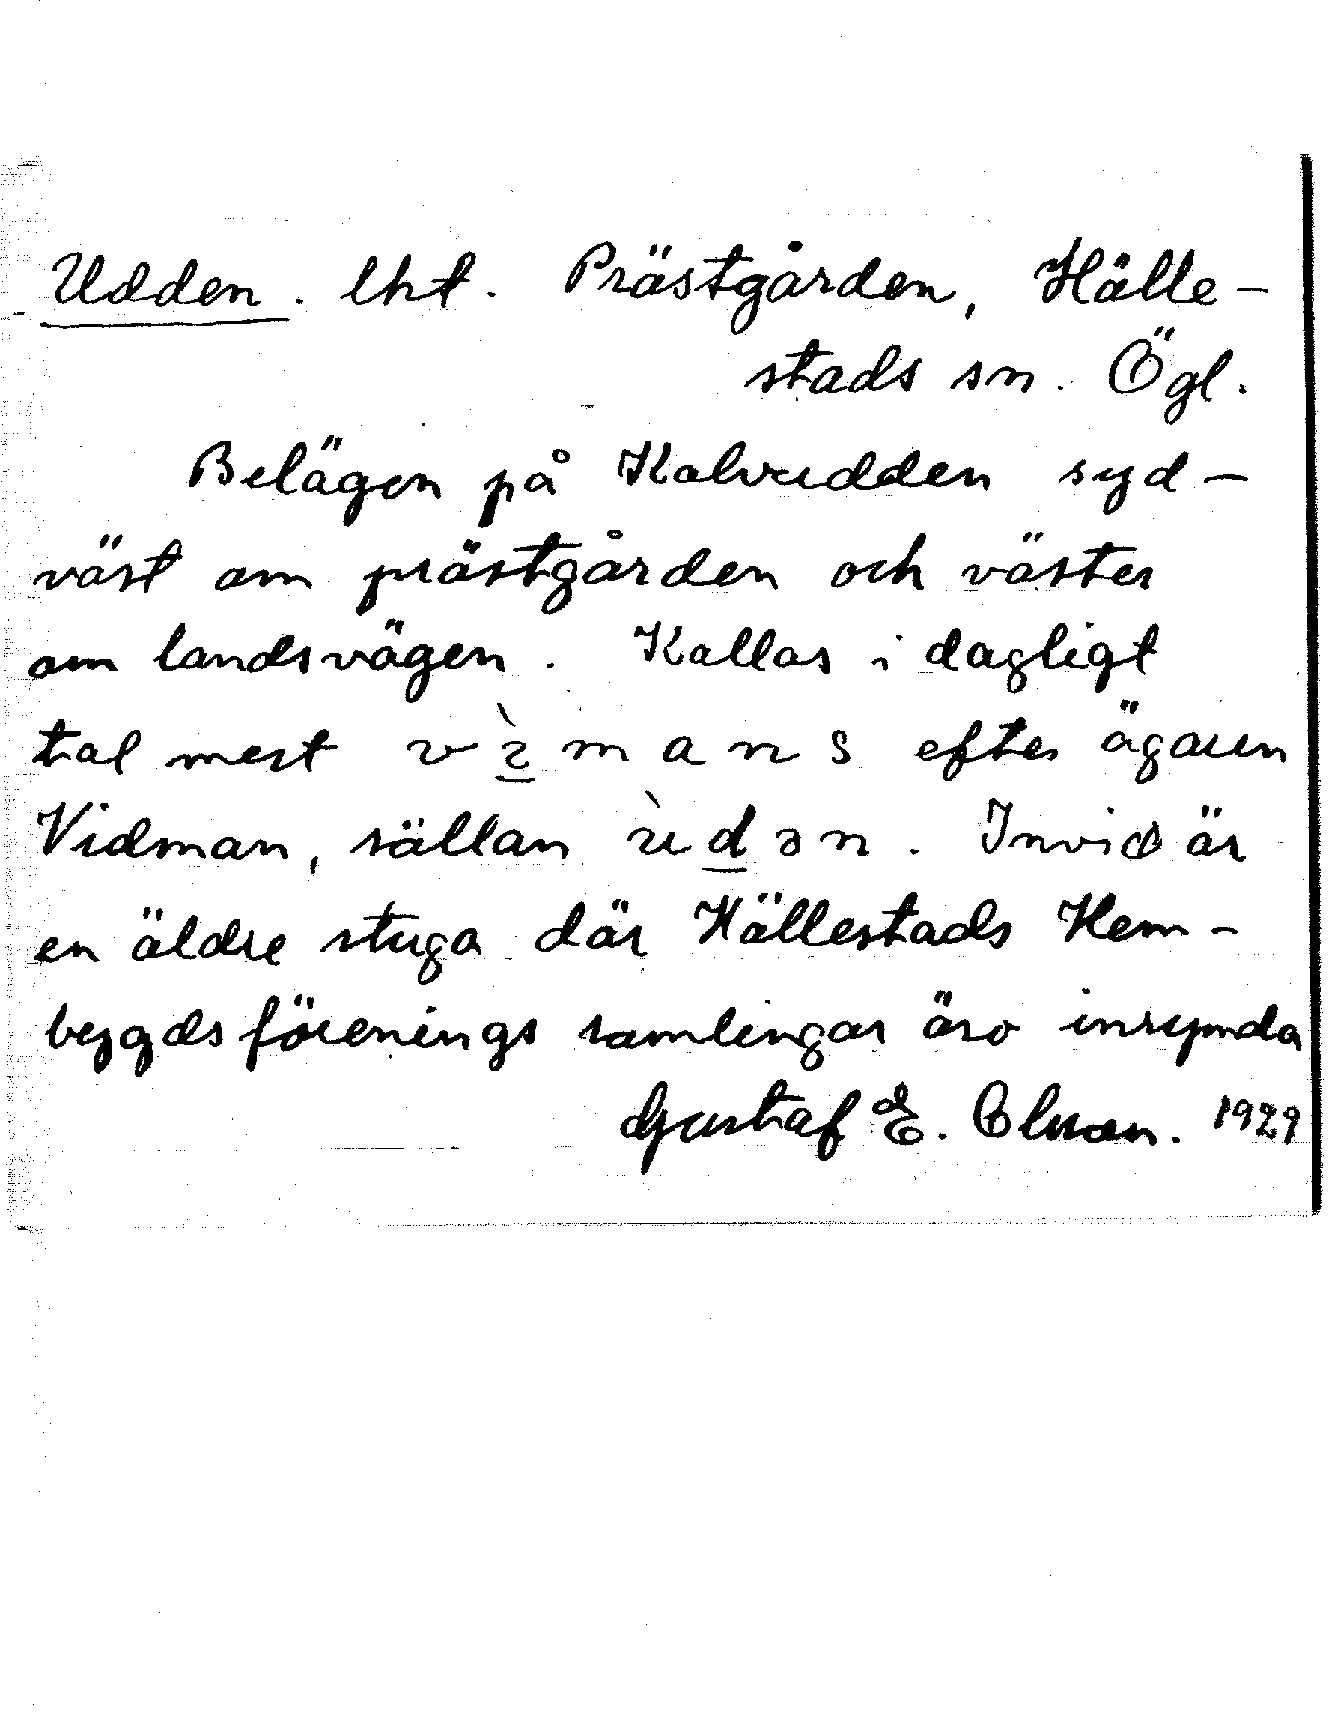 Udden. lht. Prästgården, Hälle-
stads sn. Ögl.
Belägen på Kalvudden syd-
väst om prästgården och väster
om landsvägen. Kallas i dagligt
tal mest v ì m a n s efter ägaren
Vidman, sällan ùdən. Invid är
en äldre stuga där Hällestads Hem-
bygdsförenings samlingar äro inrymda
Gustaf E. Olsson. 1929